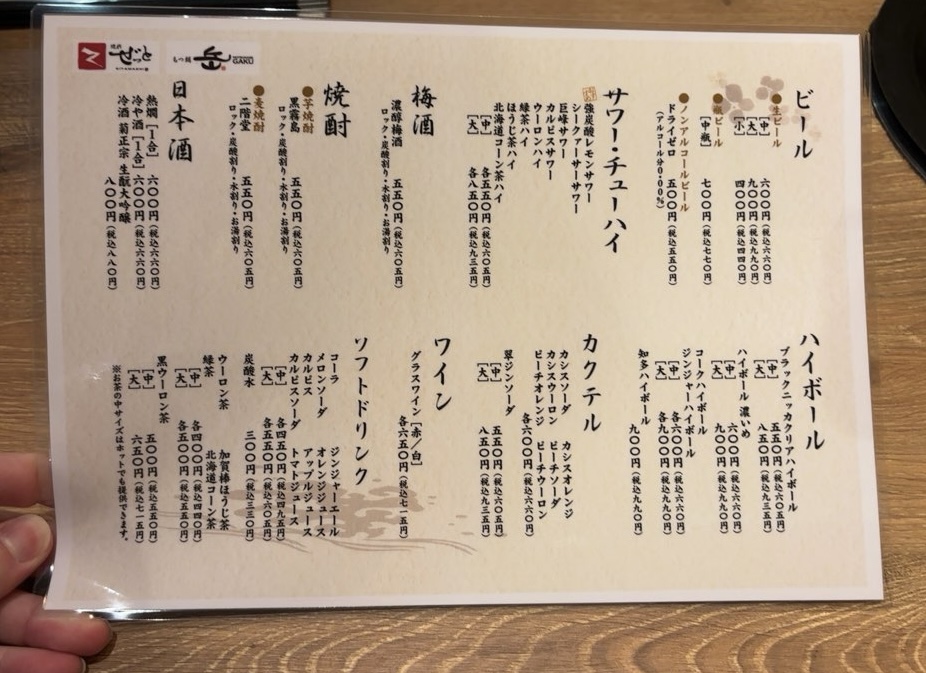 ビール
●生ビール
[中] 六〇〇円(税込六六〇円)
[大] 九〇〇円(税込九九〇円)
[小] 四〇〇円(税込四四〇円)
●瓶ビール
[中瓶] 七〇〇円(税込七七〇円)
●ノンアルコールビール
ドライゼロ 五〇〇円(税込五五〇円)
(アルコール分0.00%)
サワー・チューハイ
強炭酸レモンサワー
シークァーサーサワー
巨峰サワー
カルピスサワー
ウーロンハイ
緑茶ハイ
ほうじ茶ハイ
北海道コーン茶ハイ
[中] 各五五〇円(税込六〇五円)
[大] 各八五〇円(税込九三五円)
梅酒
濃醇梅酒 五五〇円(税込六〇五円)
ロック・炭酸割り・水割り・お湯割り
焼酎
●芋焼酎
黒霧島 五五〇円(税込六〇五円)
ロック・炭酸割り・水割り・お湯割り
●麦焼酎
二階堂 五五〇円(税込六〇五円)
ロック・炭酸割り・水割り・お湯割り
日本酒
熱燗[1合] 六〇〇円(税込六六〇円)
冷や酒[1合] 六〇〇円(税込六六〇円)
冷酒 菊正宗 生酛大吟醸
八〇〇円(税込八八〇円)
ぜっと
もつ鍋 岳 GAKU
ハイボール
ブラックニッカクリアハイボール
[中] 五五〇円(税込六〇五円)
[大] 八五〇円(税込九三五円)
ハイボール 濃いめ
[中] 六〇〇円(税込六六〇円)
[大] 九〇〇円(税込九九〇円)
コークハイボール
ジンジャーハイボール
[中] 各六〇〇円(税込六六〇円)
[大] 各九〇〇円(税込九九〇円)
知多ハイボール
九〇〇円(税込九九〇円)
カクテル
カシスソーダ カシスオレンジ
カシスウーロン ピーチソーダ
ピーチオレンジ ピーチウーロン
各六〇〇円(税込六六〇円)
翠ジンソーダ
[中] 五五〇円(税込六〇五円)
[大] 八五〇円(税込九三五円)
ワイン
グラスワイン[赤/白]
各六五〇円(税込七一五円)
ソフトドリンク
コーラ ジンジャーエール
メロンソーダ オレンジジュース
カルピス アップルジュース
カルピスソーダ トマトジュース
[中] 各四五〇円(税込四九五円)
[大] 各五五〇円(税込六〇五円)
炭酸水 三〇〇円(税込三三〇円)
ウーロン茶 加賀棒ほうじ茶
緑茶 北海道コーン茶
[中] 各四〇〇円(税込四四〇円)
[大] 各五〇〇円(税込五五〇円)
黒ウーロン茶
[中] 五〇〇円(税込五五〇円)
[大] 六五〇円(税込七一五円)
※お茶の中サイズはホットでも提供できます。